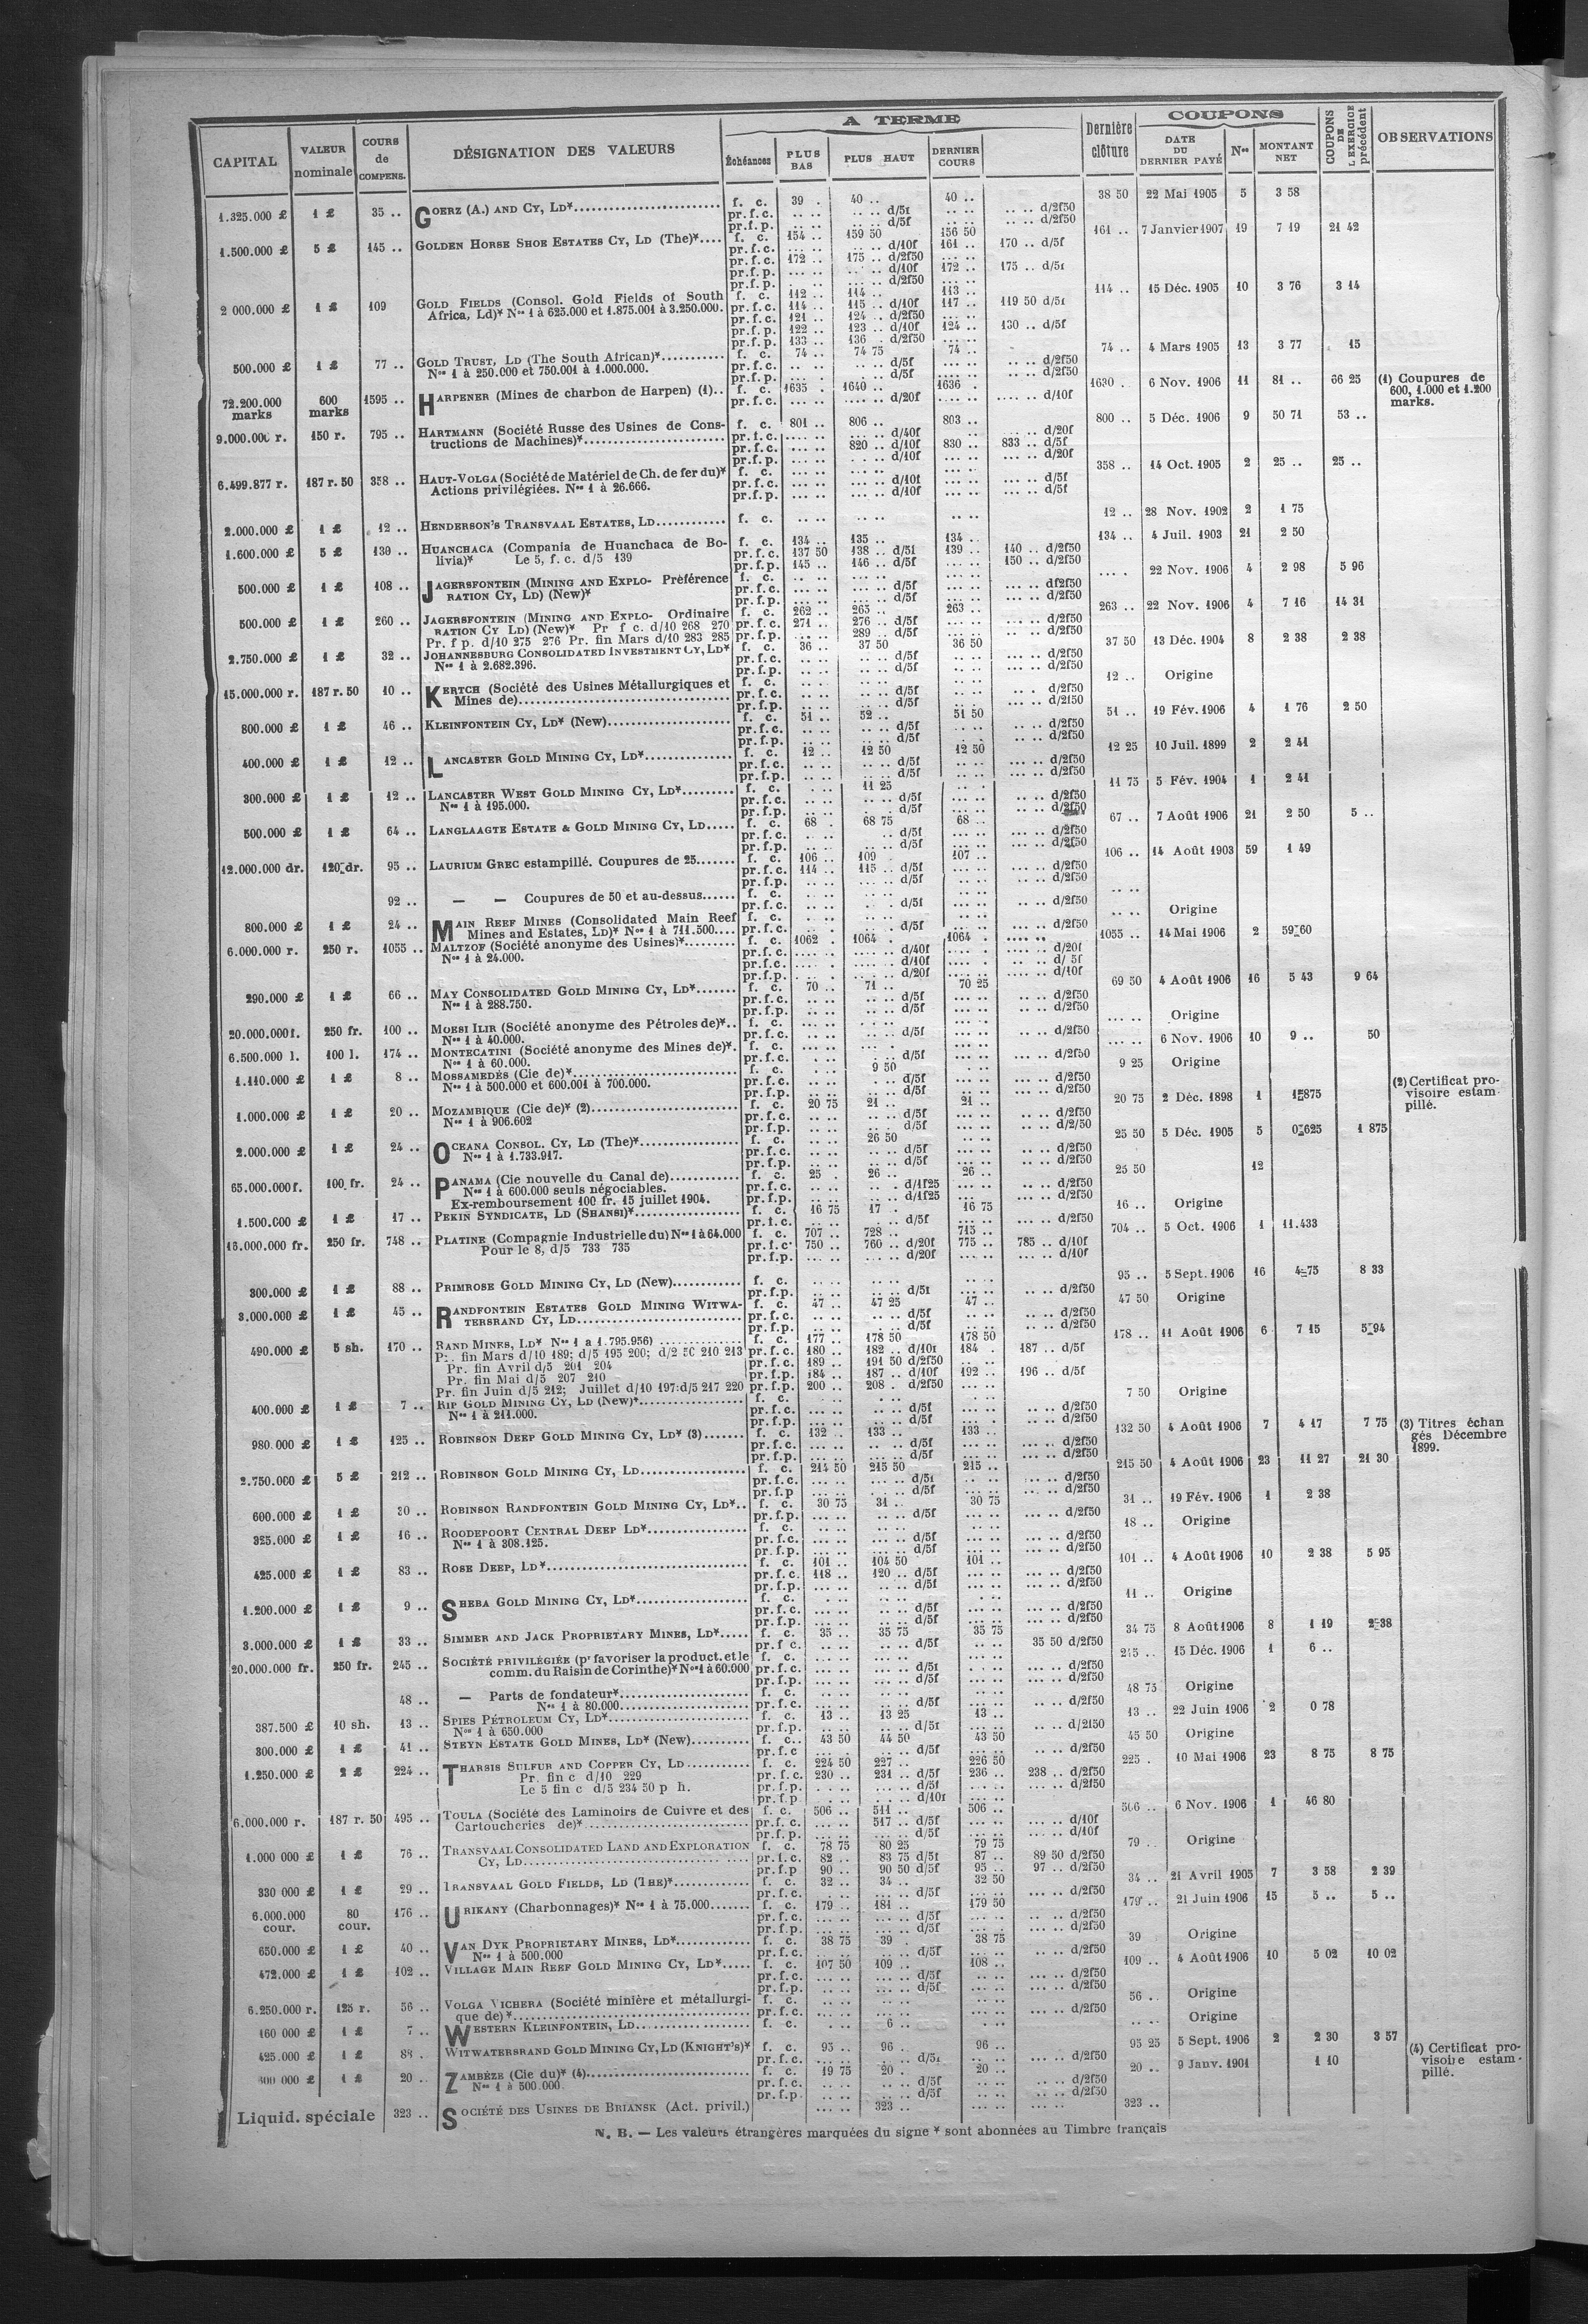 CAPITAL | VALEUR nominale | COURS de COMPENS. | DÉSIGNATION DES VALEURS | A TERME | Dernière clôture | COUPONS | COUPONS DE L'EXERCICE précédent | OBSERVATIONS
Échéances | PLUS BAS | PLUS HAUT | DERNIER COURS | DATE DU DERNIER PAYÉ | Nos | MONTANT NET
1.325.000 £ 1 £ 35 .. GOERZ (A.) AND CY, LD* f. c. 39 . 40 .. 40 .. 38 50 22 Mai 1905 5 3 58
pr.f.c. .. .. .. .. d/5f .. .. .. .. d/2f50
pr.f.p. .. .. .. .. d/5f .. .. .. .. d/2f50
1.500.000 £ 5 £ 145 .. GOLDEN HORSE SHOE ESTATES CY, LD (The)* f. c. 154 .. 159 50 156 50 161 .. 7 Janvier 1907 19 7 19 21 42
pr.f.c. .. .. d/10f 161 .. 170 .. d/5f
pr.f.c. 172 .. 175 .. d/2f50
pr.f.p. .. .. d/10f 172 .. 175 .. d/5f
pr.f.p. .. .. d/2f50
2 000.000 £ 1 £ 109 GOLD FIELDS (Consol. Gold Fields of South f. c. 112 .. 114 .. 113 .. 114 .. 15 Déc. 1905 10 3 76 3 14
Africa, Ld)* Nos 1 à 625.000 et 1.875.001 à 3.250.000. pr.f.c. 114 .. 115 .. d/10f 117 .. 119 50 d/5f
pr.f.c. 121 .. 124 .. d/2f50
pr.f.p. 122 .. 123 .. d/10f 124 .. 130 .. d/5f
pr.f.p. 133 .. 136 . d/2f50
500.000 £ 1 £ 77 .. GOLD TRUST, LD (The South African)* f. c. 74 .. 74 75 74 .. 74 .. 4 Mars 1905 13 3 77 15
Nos 1 à 250.000 et 750.001 à 1.000.000. pr.f.c. d/5f d/2f50
pr.f.p. d/5f d/2f50
72.200.000 marks 600 marks 1595 .. HARPENER (Mines de charbon de Harpen) (1).. f. c. 1635 .. 1640 .. 1636 . 1630 . 6 Nov. 1906 11 81 .. 66 25 (1) Coupures de 600, 1.000 et 1.200 marks.
pr.f.c. .... .. .... .. d/20f .... .. d/10f
9.000.000 r. 150 r. 795 .. HARTMANN (Société Russe des Usines de Cons- f. c. 801 .. 806 .. 803 .. 800 .. 5 Déc. 1906 9 50 71 53 ..
tructions de Machines)* pr.f.c. d/40f d/20f
pr.f.c. 820 .. d/10f 830 .. 833 .. d/5f
pr.f.p. d/10f d/20f
6.499.877 r. 187 r. 50 358 .. HAUT-VOLGA (Société de Matériel de Ch. de fer du)* f. c. 358 .. 14 Oct. 1905 2 25 .. 25 ..
Actions privilégiées. Nos 1 à 26.666. pr.f.c. d/10f d/5f
pr.f.p. d/10f d/5f
2.000.000 £ 1 £ 12 .. HENDERSON'S TRANSVAAL ESTATES, LD f. c. .. .. .. .. .. .. 12 .. 28 Nov. 1902 2 1 75
1.600.000 £ 5 £ 130 .. HUANCHACA (Compania de Huanchaca de Bo- f. c. 134 .. 135 .. 134 .. 134 .. 4 Juil. 1903 21 2 50
livia)* Le 5, f. c. d/5 139 pr.f.c. 137 50 138 .. d/5f 139 .. 140 .. d/2f50
pr.f.p. 145 .. 146 .. d/5f 150 .. d/2f50
500.000 £ 1 £ 108 .. JAGERSFONTEIN (MINING AND EXPLO- Préférence f. c. .... . 22 Nov. 1906 4 2 98 5 96
RATION CY, LD) (New)* pr.f.c. d/5f d/2f50
pr.f.p. d/5f d/2f50
500.000 £ 1 £ 260 .. JAGERSFONTEIN (MINING AND EXPLO- Ordinaire f. c. 262 .. 265 .. 263 .. 263 .. 22 Nov. 1906 4 7 16 14 31
RATION CY LD) (New)* Pr f c. d/10 268 270 pr.f.c. 271 .. 276 .. d/5f d/2f50
Pr. f p. d/10 275 276 Pr. fin Mars d/10 283 285 pr.f.p. 289 .. d/5f d/2f50
2.750.000 £ 1 £ 32 .. JOHANNESBURG CONSOLIDATED INVESTMENT CY, LD* f. c. 36 .. 37 50 36 50 37 50 13 Déc. 1904 8 2 38 2 38
Nos 1 à 2.682.396. pr.f.c. d/5f d/2f50
pr.f.p. d/5f d/2f50
15.000.000 r. 187 r. 50 10 .. KERTCH (Société des Usines Métallurgiques et f. c. 12 .. Origine
Mines de) pr.f.c. d/5f d/2f50
pr.f.p. d/5f d/2f50
800.000 £ 1 £ 46 .. KLEINFONTEIN CY, LD* (New) f. c. 51 .. 52 .. 51 50 51 .. 19 Fév. 1906 4 1 76 2 50
pr.f.c. d/5f d/2f50
pr.f.p. d/5f d/2f50
400.000 £ 1 £ 12 .. LANCASTER GOLD MINING CY, LD* f. c. 12 .. 12 50 12 50 12 25 10 Juil. 1899 2 2 41
pr.f.c. d/5f d/2f50
pr.f.p. d/5f d/2f50
300.000 £ 1 £ 12 .. LANCASTER WEST GOLD MINING CY, LD* f. c. 11 25 11 75 5 Fév. 1904 1 2 41
Nos 1 à 195.000. pr.f.c. d/5f d/2f50
pr.f.p. d/5f d/2f50
500.000 £ 1 £ 64 .. LANGLAAGTE ESTATE & GOLD MINING CY, LD f. c. 68 . 68 75 68 .. 67 .. 7 Août 1906 21 2 50 5 ..
pr.f.c. d/5f d/2f50
pr.f.p. d/5f d/2f50
12.000.000 dr. 120 dr. 95 .. LAURIUM GREC estampillé. Coupures de 25 f. c. 106 .. 109 107 .. 106 .. 14 Août 1903 59 1 49
pr.f.c. 114 .. 115 .. d/5f d/2f50
pr.f.p. d/5f d/2f50
92 .. — — Coupures de 50 et au-dessus f. c. .. ..
pr.f.c. d/5f d/2f50
800.000 £ 1 £ 24 .. MAIN REEF MINES (Consolidated Main Reef f. c. .. .. Origine
Mines and Estates, LD)* Nos 1 à 711.500 pr.f.c. d/5f d/2f50
6.000.000 r. 250 r. 1055 .. MALTZOF (Société anonyme des Usines)* f. c. 1062 . 1064 . 1064 . 1055 .. 14 Mai 1906 2 59 60
Nos 1 à 24.000. pr.f.c. d/40f d/20f
pr.f.c. d/10f d/ 5f
pr.f.p. d/20f d/10f
290.000 £ 1 £ 66 .. MAY CONSOLIDATED GOLD MINING CY, LD* f. c. 70 .. 71 .. 70 25 69 50 4 Août 1906 16 5 43 9 64
Nos 1 à 288.750. pr.f.c. d/5f d/2f50
pr.f.p. d/5f d/2f50
20.000.000 f. 250 fr. 100 .. MOESI ILIR (Société anonyme des Pétroles de)* f. c. Origine
Nos 1 à 40.000. pr.f.c. d/5f d/2f50
6.500.000 l. 100 l. 174 .. MONTECATINI (Société anonyme des Mines de)* f. c. 6 Nov. 1906 10 9 .. 50
Nos 1 à 60.000. pr.f.c. d/5f d/2f50
1.110.000 £ 1 £ 8 .. MOSSAMEDÈS (Cie de)* f. c. 9 50 9 25 Origine
Nos 1 à 500.000 et 600.001 à 700.000. pr.f.c. d/5f d/2f50
pr.f.p. d/5f d/2f50
1.000.000 £ 1 £ 20 .. MOZAMBIQUE (Cie de)* (2) f. c. 20 75 21 .. 21 .. 20 75 2 Déc. 1898 1 1 875 (2) Certificat provisoire estampillé.
Nos 1 à 906.602 pr.f.c. d/5f d/2f50
pr.f.p. d/5f d/2/50
2.000.000 £ 1 £ 24 .. OCEANA CONSOL. CY, LD (The)* f. c. 26 50 25 50 5 Déc. 1905 5 0 625 1 875
Nos 1 à 1.733.917. pr.f.c. d/5f d/2f50
pr.f.p. d/5f d/2f50
65.000.000 f. 100 fr. 24 .. PANAMA (Cie nouvelle du Canal de) f. c. 25 . 26 .. 26 .. 25 50 12
Nos 1 à 600.000 seuls négociables. pr.f.c. d/1f25 d/2f50
Ex-remboursement 100 fr. 15 juillet 1904. pr.f.p. d/1f25 d/2f50
1.500.000 £ 1 £ 17 .. PEKIN SYNDICATE, LD (SHANSI)* f. c. 16 75 17 . 16 75 16 .. Origine
pr.f.c. d/5f d/2f50
16.000.000 fr. 250 fr. 748 .. PLATINE (Compagnie Industrielle du) Nos 1 à 64.000 f. c. 707 .. 728 .. 715 .. 704 .. 5 Oct. 1906 1 11.433
Pour le 8, d/5 733 735 pr.f.c. 750 .. 760 .. d/20f 775 .. 785 .. d/10f
pr.f.p. d/20f d/10f
300.000 £ 1 £ 88 .. PRIMROSE GOLD MINING CY, LD (New) f. c. 95 .. 5 Sept. 1906 16 4 75 8 33
pr.f.p. d/5f d/2f50
3.000.000 £ 1 £ 45 .. RANDFONTEIN ESTATES GOLD MINING WITWA- f. c. 47 .. 47 25 47 .. 47 50 Origine
TERSRAND CY, LD pr.f.c. d/5f d/2f50
pr.f.p. d/5f d/2f50
490.000 £ 5 sh. 170 .. RAND MINES, LD* Nos 1 a 1.795.956) f. c. 177 .. 178 50 178 50 178 .. 11 Août 1906 6 7 15 5 94
Pr. fin Mars d/10 189; d/5 195 200; d/2 50 210 213 pr.f.c. 180 .. 182 .. d/10f 184 . 187 .. d/5f
Pr. fin Avril d/5 201 204 pr.f.c. 189 .. 191 50 d/2f50
Pr. fin Mai d/5 207 210 pr.f.p. 184 .. 187 .. d/10f 192 .. 196 .. d/5f
Pr. fin Juin d/5 212; Juillet d/10 197:d/5 217 220 pr.f.p. 200 .. 208 . d/2f50
400.000 £ 1 £ 7 .. RIP GOLD MINING CY, LD (New)* f. c. 7 50 Origine
Nos 1 à 211.000. pr.f.c. d/5f d/2f50
pr.f.p. d/5f d/2f50
980.000 £ 1 £ 125 .. ROBINSON DEEP GOLD MINING CY, LD* (3) f. c. 132 . 133 .. 133 .. 132 50 4 Août 1906 7 4 17 7 75 (3) Titres échangés Décembre 1899.
pr.f.c. d/5f d/2f50
pr.f.p. d/5f d/2f50
2.750.000 £ 5 £ 212 .. ROBINSON GOLD MINING CY, LD f. c. 214 50 215 50 215 .. 215 50 4 Août 1906 23 11 27 21 30
pr.f.c. d/5f d/2f50
pr.f.p d/5f d/2f50
600.000 £ 1 £ 30 .. ROBINSON RANDFONTEIN GOLD MINING CY, LD* f. c. 30 75 31 .. 30 75 31 .. 19 Fév. 1906 1 2 38
pr.f.p. d/5f d/2f50
325.000 £ 1 £ 16 .. ROODEPOORT CENTRAL DEEP LD* f. c. 18 .. Origine
Nos 1 à 308.125. pr.f.c. d/5f d/2f50
pr.f.p. d/5f d/2f50
425.000 £ 1 £ 83 .. ROSE DEEP, LD* f. c. 101 .. 104 50 101 .. 101 .. 4 Août 1906 10 2 38 5 95
pr.f.c. 118 .. 120 .. d/5f d/2f50
pr.f.p. d/5f d/2f50
1.200.000 £ 1 £ 9 .. SHEBA GOLD MINING CY, LD* f. c. 11 .. Origine
pr.f.c. d/5f d/2f50
pr.f.p. d/5f d/2f50
3.000.000 £ 1 £ 33 .. SIMMER AND JACK PROPRIETARY MINES, LD* f. c. 35 .. 35 75 35 75 34 75 8 Août 1906 8 1 19 2 38
pr.f c. d/5f 35 50 d/2f50
20.000.000 fr. 250 fr. 245 .. SOCIÉTÉ PRIVILÉGIÉE (pr favoriser la product. et le f. c. 245 .. 15 Déc. 1906 1 6 ..
comm. du Raisin de Corinthe)* Nos 1 à 60.000 pr.f.c. d/5f d/2f50
pr.f.p. d/5f d/2f50
48 .. — Parts de fondateur* f. c. 48 75 Origine
Nos 1 à 80.000 pr.f.c. d/5f d/2f50
387.500 £ 10 sh. 13 .. SPIES PÉTROLEUM CY, LD* f. c. 13 .. 13 25 13 .. 13 .. 22 Juin 1906 2 0 78
Nos 1 à 650.000 pr.f.p. d/5f d/2f50
300.000 £ 1 £ 41 .. STEYN ESTATE GOLD MINES, LD* (New) f. c. 43 50 44 50 43 50 45 50 Origine
pr.f.c d/5f d/2f50
1.250.000 £ 2 £ 224 .. THARSIS SULFUR AND COPPER CY, LD f. c. 224 50 227 .. 226 50 225 . 10 Mai 1906 23 8 75 8 75
Pr. fin c d/10 229 pr.f.c. 230 .. 231 .. d/5f 236 .. 238 .. d/2f50
Le 5 fin c d/5 234 50 p h. pr.f.p. d/5f d/2f50
pr.f.p d/10f
6.000.000 r. 187 r. 50 495 .. TOULA (Société des Laminoirs de Cuivre et des f. c. 506 .. 511 .. 506 .. 506 .. 6 Nov. 1906 1 46 80
Cartoucheries de)* pr.f.c. 517 .. d/5f d/10f
pr.f.p. d/5f d/10f
1.000 000 £ 1 £ 76 .. TRANSVAAL CONSOLIDATED LAND AND EXPLORATION f. c. 78 75 80 25 79 75 79 .. Origine
CY, LD pr.f.c. 82 .. 83 75 d/5f 87 .. 89 50 d/2f50
pr.f.p 90 .. 90 50 d/5f 95 .. 97 .. d/2f50
330 000 £ 1 £ 29 .. TRANSVAAL GOLD FIELDS, LD (THE)* f. c. 32 .. 34 .. 32 50 34 .. 21 Avril 1905 7 3 58 2 39
pr.f.c. d/5f d/2f50
6.000.000 cour. 80 cour. 176 .. URIKANY (Charbonnages)* Nos 1 à 75.000 f. c. 179 .. 181 .. 179 50 179 .. 21 Juin 1906 15 5 .. 5 ..
pr.f.c. d/5f d/2f50
pr.f.p. d/5f d/2f50
650.000 £ 1 £ 40 .. VAN DYK PROPRIETARY MINES, LD* f. c. 38 75 39 . 38 75 39 Origine
Nos 1 à 500.000 pr.f.c. d/5f d/2f50
472.000 £ 1 £ 102 .. VILLAGE MAIN REEF GOLD MINING CY, LD* f. c. 107 50 109 .. 108 .. 109 .. 4 Août 1906 10 5 02 10 02
pr.f.c. d/5f d/2f50
pr.f.p. d/5f d/2f50
6.250.000 r. 125 r. 56 .. VOLGA VICHERA (Société minière et métallurgi- f. c. 56 .. Origine
que de)* pr.f.c. d/2f50
160 000 £ 1 £ 7 .. WESTERN KLEINFONTEIN, LD f. c. 6 .. .. . Origine
425.000 £ 1 £ 88 . WITWATERSRAND GOLD MINING CY, LD (KNIGHT'S)* f. c. 95 .. 96 . 96 .. 95 25 5 Sept. 1906 2 2 30 3 57
pr.f.c. d/5f d/2f50
600 000 £ 1 £ 20 . ZAMBÈZE (Cie du)* (4) f. c. 19 75 20 . 20 .. 20 .. 9 Janv. 1901 1 10 (4) Certificat provisoire estampillé.
Nos 1 à 500.000 pr.f.c. d/5f d/2f50
pr.f.p d/5f d/2f50
Liquid. spéciale 323 .. SOCIÉTÉ DES USINES DE BRIANSK (Act. privil.) 323 .. 323 ..
N. B. — Les valeurs étrangères marquées du signe * sont abonnées au Timbre français